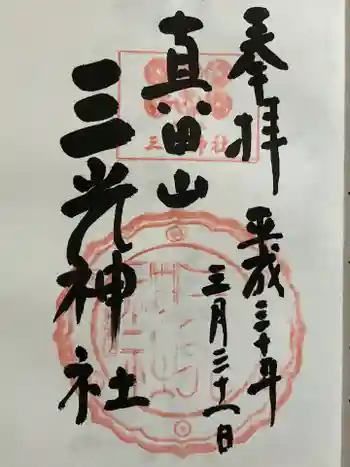 奉拝
平成三十年
三月二十一日
真田山
三光神社
三光神社